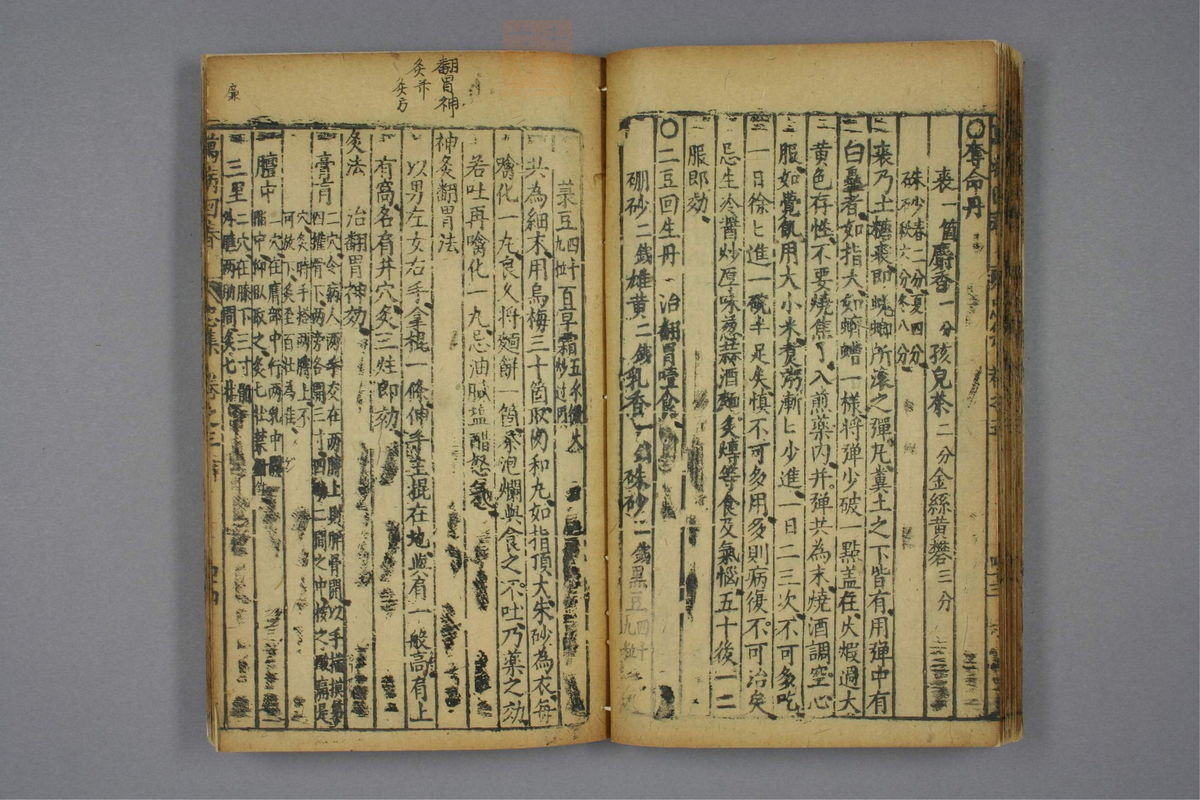 ○奪命丹
裘一箇 麝香一分 孩兒茶二分 金絲黄礬三分
硃砂春二分 夏四分 秋六分 冬八分
裘乃土糖裘即蜣蜋所滾之彈尾糞土之下皆有用彈中有
白蟲者如指大如蠐螬一樣將彈少破一點盖在火煆過大
黄色存性不要燒焦了入煎藥内并彈共為末燒酒調空心
服如覺飢用大小米煮粥漸匕少進一日二三次不可多吃
一日徐匕進一碗半足矣慎不可多用多則病復不可治矣
忌生冷醬炒厚味葱蒜酒麵炙煿等食及氣惱五十後一二
服即効
○二豆回生丹 治翻胃噎食
硼砂二錢 雄黄二錢 乳香一錢 硃砂二錢 黑豆四十九粒
菉豆四十九粒 百草霜五
共為細末用烏梅三十箇取肉和丸如指頂大朱砂為衣每
噙化一丸良久將麵餅一箇泡爛與食之不吐乃藥之効
若吐再噙化一丸忌油醎塩醋怒氣
神灸翻胃法
以男左女右手拿棍一條伸手主棍在地 有一般高肩上
有窩名肩井穴灸三壯即効
灸法 治翻胃神効
膏肓 二穴令病人兩手交在兩膊上則胛骨開以手揣摸
四椎骨下兩旁各開三寸四肋二間之中按之酸痛是
穴灸時手搭兩膊上不
可放下灸至百壯為佳
膻中 一穴在膺部中行兩乳中間
陷中仰卧取之灸七壯
三里 二穴在膝下三寸
外廉兩筋間灸七壯
萬病回春
翻胃神
灸并
灸方